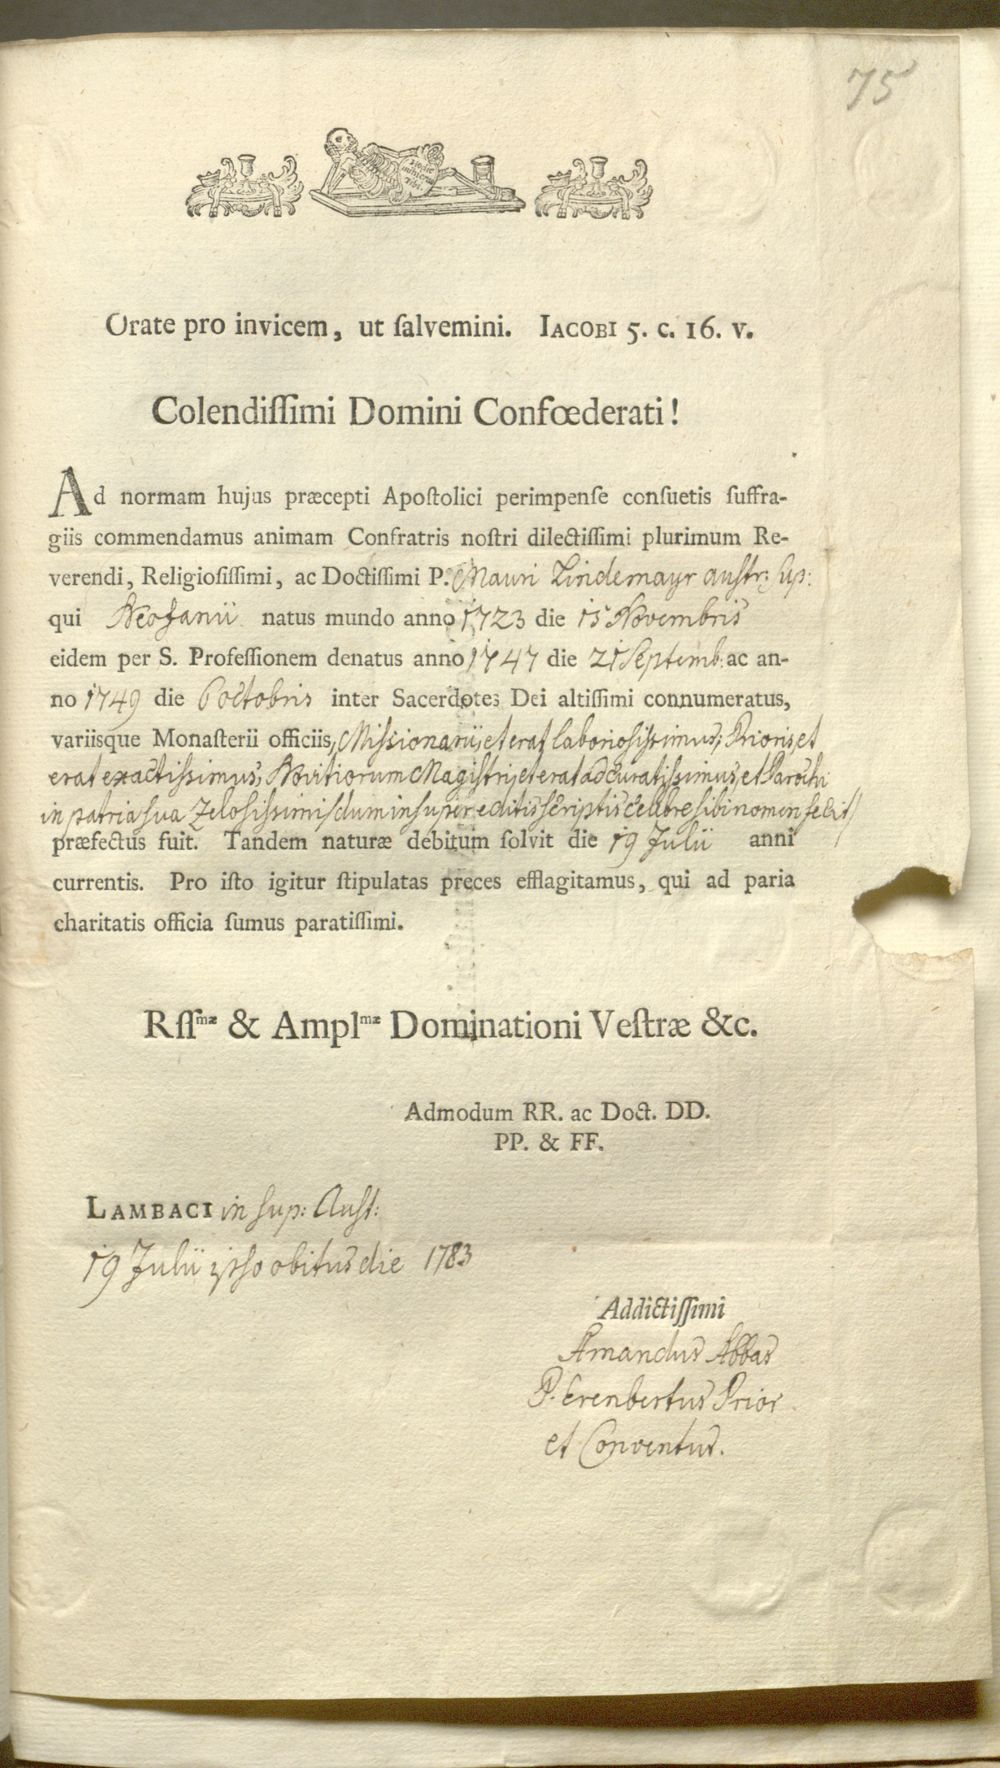 75
Hodie mihi cras tibi
Orate pro invicem, ut ſalvemini. IACOBI 5. c. 16. v.
Colendiſſimi Domini Confœderati!
Ad normam hujus præcepti Apoſtolici perimpenſe conſuetis ſuffra-
giis commendamus animam Confratris noſtri dilectiſſimi plurimum Re-
verendi, Religioſiſſimi, ac Doctiſſimi P. Mauri Lindemayr austr: sup:
qui Neofanii natus mundo anno 1723 die 15 Novembris
eidem per S. Profeſſionem denatus anno 1747 die 21 Septemb: ac an-
no 1749 die 6 octobris inter Sacerdotes Dei altiſſimi connumeratus,
variisque Monaſterii officiis, Missionarii, et erat laboriosissimus; Prioris, et
erat exactissimus; Novitiorum Magistri, et erat adcuratissimus, et Parochi
in patria sua zelosissimi /dum insuper editis scriptis celebre sibi nomen fecit/
præfectus fuit. Tandem naturæ debitum ſolvit die 19 Julii anni
currentis. Pro iſto igitur ſtipulatas preces efflagitamus, qui ad paria
charitatis officia ſumus paratiſſimi.
Rſſmæ & Amplmæ Dominationi Veſtræ &c.
Admodum RR. ac Doct. DD.
PP. & FF.
LAMBACI in sup: Aust:
19 Julii ipso obitus die 1783
Addictiſſimi
Amandus Abbas
P. Erenbertus Prior
et Conventus.